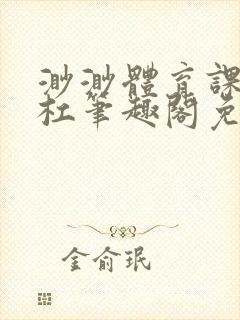 渺渺體育課
杜筆趣閣免
金俞珉